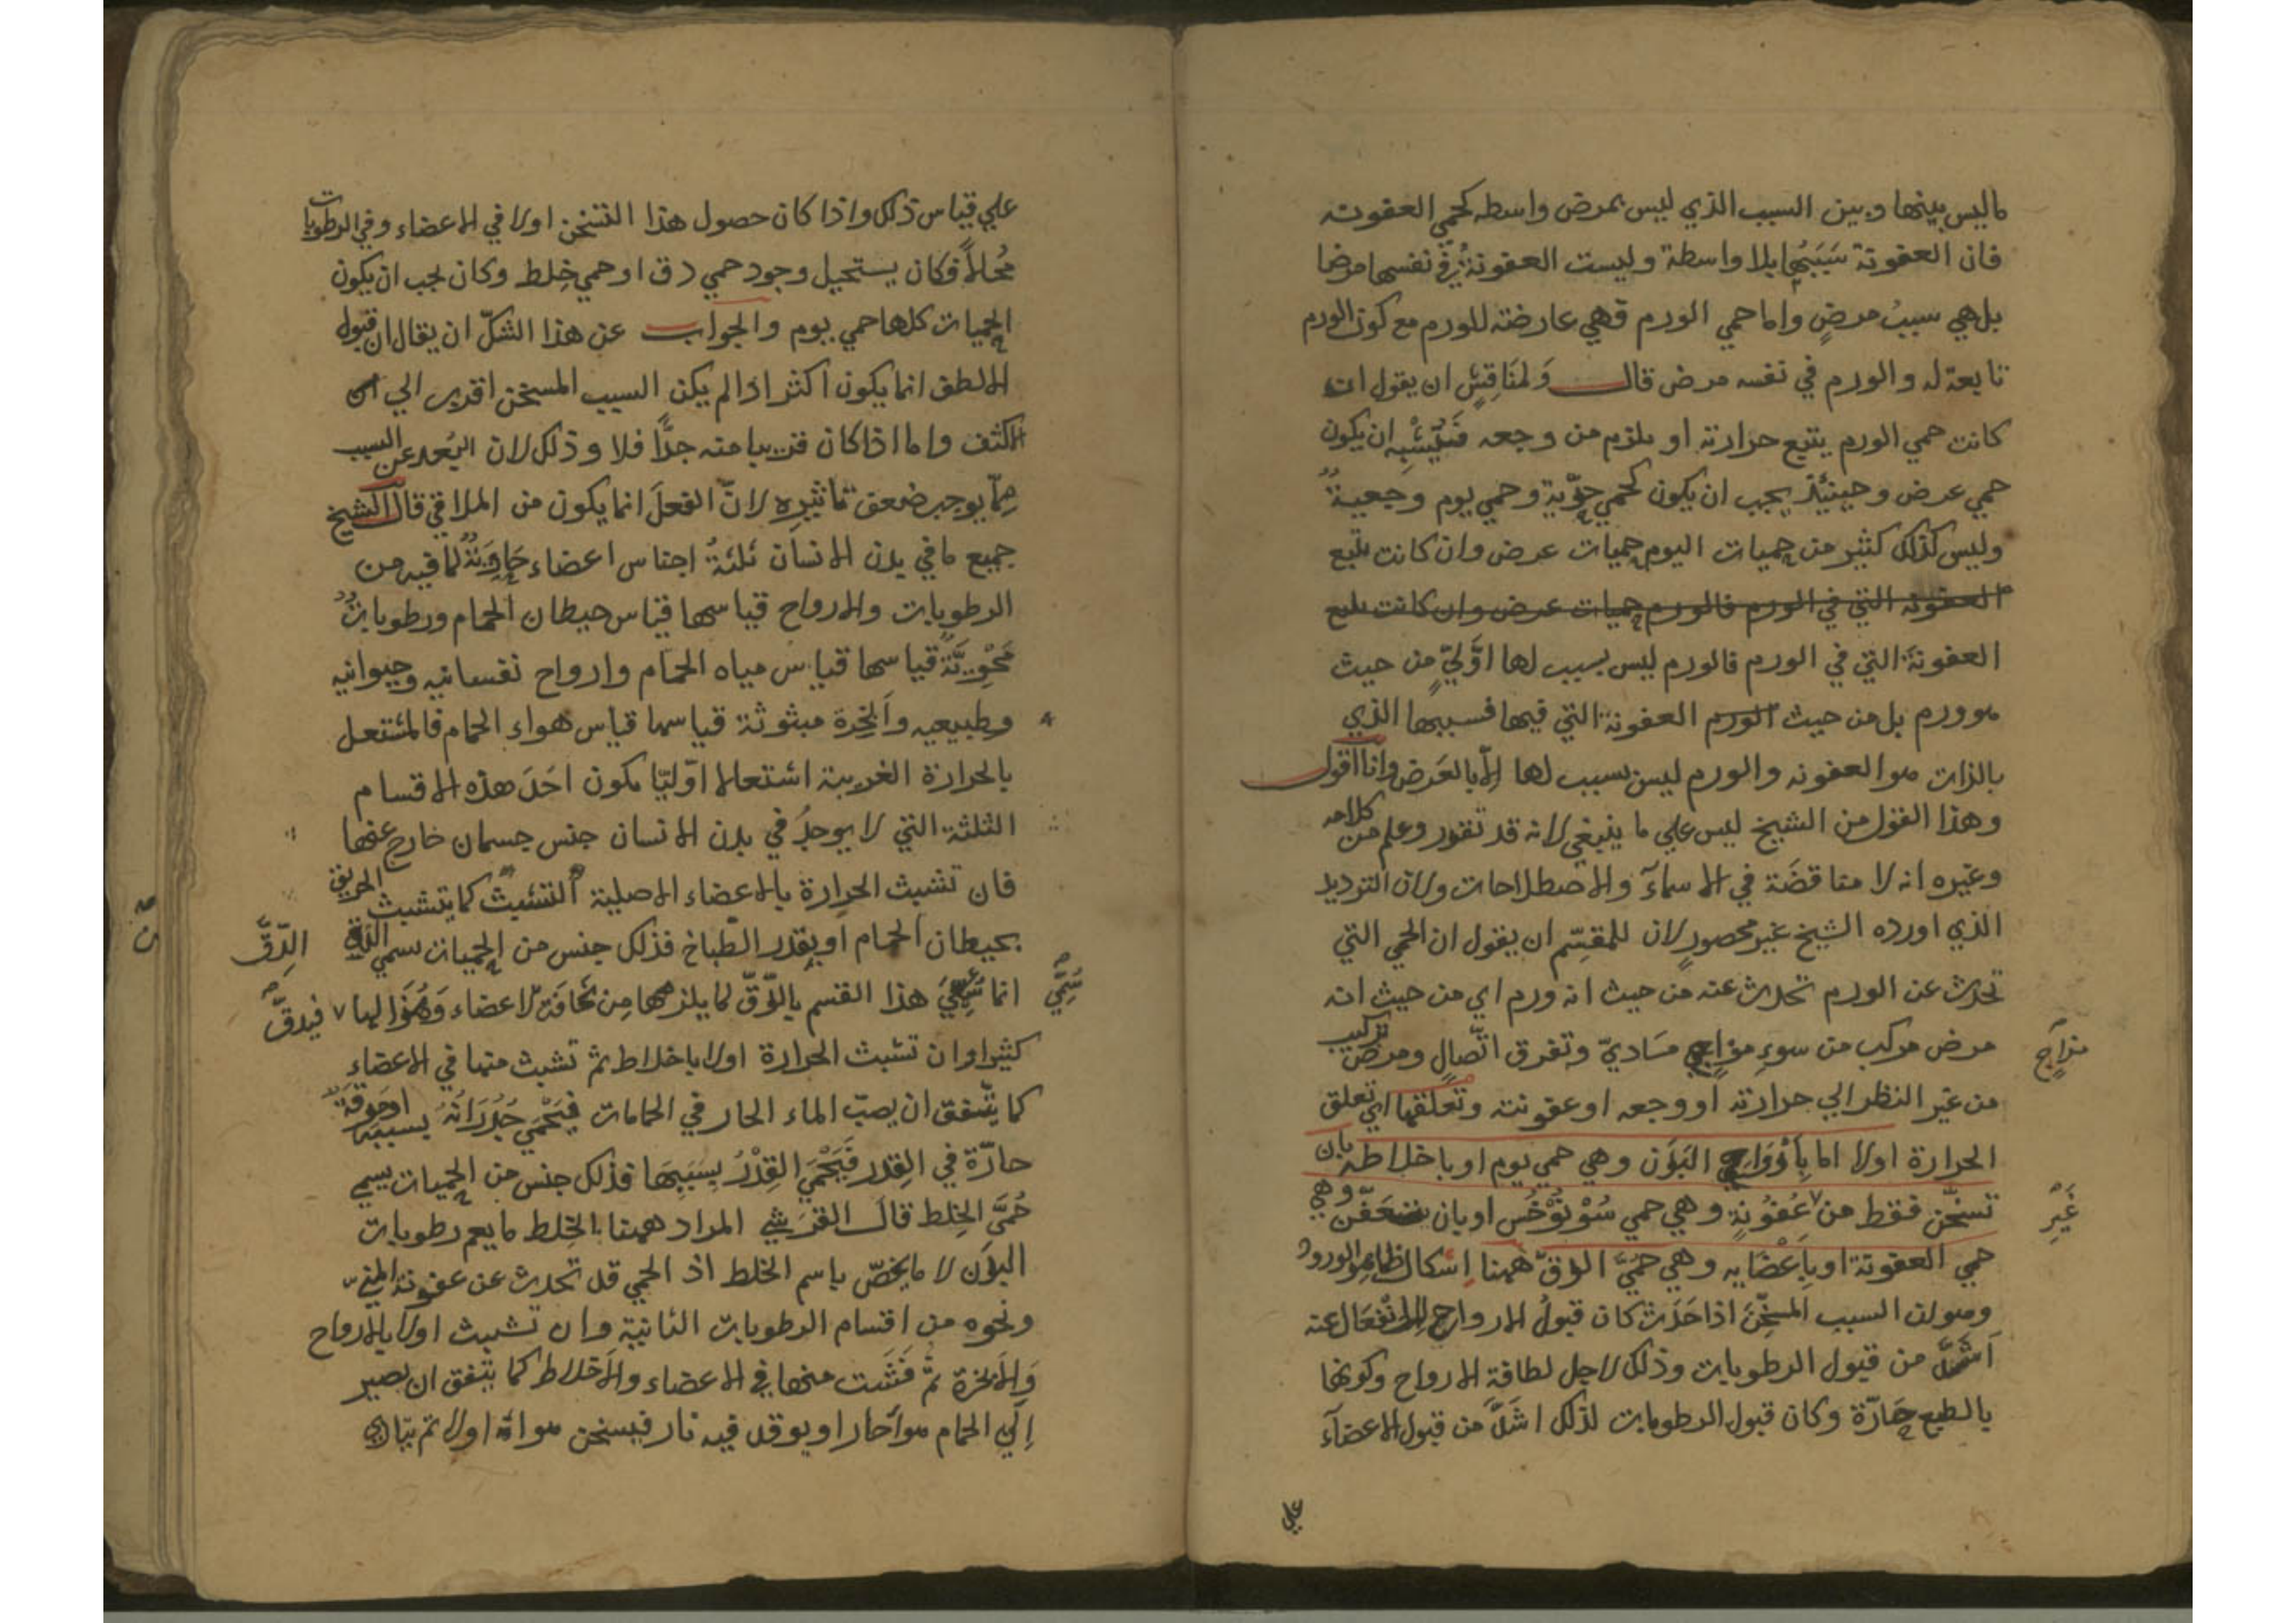 ماليس بينها وبين السبب الذي ليس بمرض واسطه كحمي العفونه
فان العفونة سَبَبُها بلا واسطة وليست العفونةُ في نفسها مرضا
بل هي سببُ مرضٍ واما حمي الورم فهي عارضته للورم مع كون الورم
تابعة له والورم في نفسه مرض قال وَلمنَاقِشٍ ان يقول ان
كانت حمي الورم يتبع حرارته او يلزم من وجعه فَيُشْبِه ان يكون
حمي عرض وحينئذ يجب ان يكون كحمي حرّية وحمي يوم وجعيةٌ
وليس كذلك كثير من حميات اليوم حميات عرض وان كانت يتبع
العفونه التي في الورم فالورم حميات عرض وان كانت يتبع
العفونةَ التي في الورم فالورم ليس بسبب لها اوّليٍّ من حيث
هو ورم بل من حيث الورم العفونة التي فيها فسببها الذي
بالذات هو العفونه والورم ليس بسبب لها إلّا بالعَرض وانا اقول
وهذا القول من الشيخ ليس علي ما ينبغي لانه قد تقرر وعلم من كلامه
وغيره انه لا مناقضَة في الاسمآء والاصطلاحات ولان الترديد
الذي اورده الشيخ غير محصورٍ لان للمقسّم ان يقول ان الحمي التي
تحدث عن الورم تحدث عنه من حيث انه ورم اي من حيث انه
مرض مركب من سوءِ مزاج مَساديّ وتفرق اتّصالٍ ومرض تركيب
مزاجٍ
من غير النظر الي حرارته او وجعه او عفونته وتعلّقها اي تعلق
الحرارة اولا اما بِاَرْوَاحِ البَدَن وهي حمي يوم او باخلاطه بان
تسخّن فقط من عُفُونةٍ وهي حمي سُوْنُوْخُس او بان تتعَفّن وهي
غَيْرِ
حمي العفونة او بِاَعْضَايه وهي حُمَّيَ الدقّ ههنا إشكال ظاهر الورود
وهو ان السبب المسَخِّنَ اذا حَدَث كان قبولُ الارواح للانْفعَال عنه
اَشدَّ من قبول الرطوبات وذلك لاجل لطافة الارواح وكونها
بالطبع حَارّة وكان قبول الرطوبات لذلك اشدَّ من قبول الاعضآء
علي
علي قياس ذلك واذا كان حصول هذا التسخن اولا في الاعضاء وفي الرطوبات
مُحالاً فكان يستحيل وجود حمي دق او حمي خِلط وكان يجب ان يكون
الحميات كلها حمي يوم والجواب عن هذا الشكّ ان يقال ان قبول
الالطف انما يكون اكثر اذا لم يكن السبب المسخن اقرب الي
الاكثف واما اذا كان قريبا منه جدًّا فلا وذلك لان البُعد عن السبب
مِمّا يوجب ضعف تاثيرِه لانّ الفعلَ انما يكون من الملاقي قال الشيخ
جميع ما في بدن الانسان ثلثةُ اجناس اعضاء حَاوِيَةٌ لما فيه من
الرطوبات والارواح قياسها قياس حيطان الحمام ورطوباتٌ
مَحْوِيَّةٌ قياسها قياس مياه الحمام وارواح نفسانيه وحيوانيه
وطبيعيه وأبخرة مبثوثة قياسها قياس هواء الحمام فالمشتعل
بالحرارة الغريبة اشتعالا اوّليّا يكون احَدَ هذه الاقسام
الثلثة التي لا يوجدُ في بدن الانسان جنس جسمان خارج عنها
فان تشبث الحرارة بالاعضاء الاصلية التشبّثَ كما يتشبث الحريق
بحيطان الحمام او بقدر الطباخ فذلك جنس من الحميات سمي الدق
الدِّقَّ
انما سُمِّيَ هذا القسم بالدّقّ لما يلزمها مِن نحافَة الاعضاء وَهُزَالها فيدقّ
سُمِّيَ
كثيرا وان تشبث الحرارة اولا باخلاط ثم تشبث منها في الاعضاء
كما يتّفق ان يصبّ الماء الحار في الحامات فَيَحْمَي جُدْرَانُهُ بسببه او مَرَقةٌ
حارّة في القِدر فَيَحْمَي القِدْرُ بِسَبَبِهَا فذلك جنس من الحميات يسمي
حُمَّيَ الخِلط قال القرَشي المراد ههنا بالخِلط ما يعم رطوبات
البدَن لا ما يخصّ باسم الخلط اذ الحمي قد تحدث عن عفونة المنيّ
ونحوه من اقسام الرطوبات الثانية وان تشبث اولا بالارواح
وَالابخرة ثُمَّ فَشَت منها في الاعضاء والاخلاط كما يتفق ان يصير
اِلَي الحمام هواءٌ حار او يوقد فيه نار فيسخن هواؤه اولا ثم يتادي